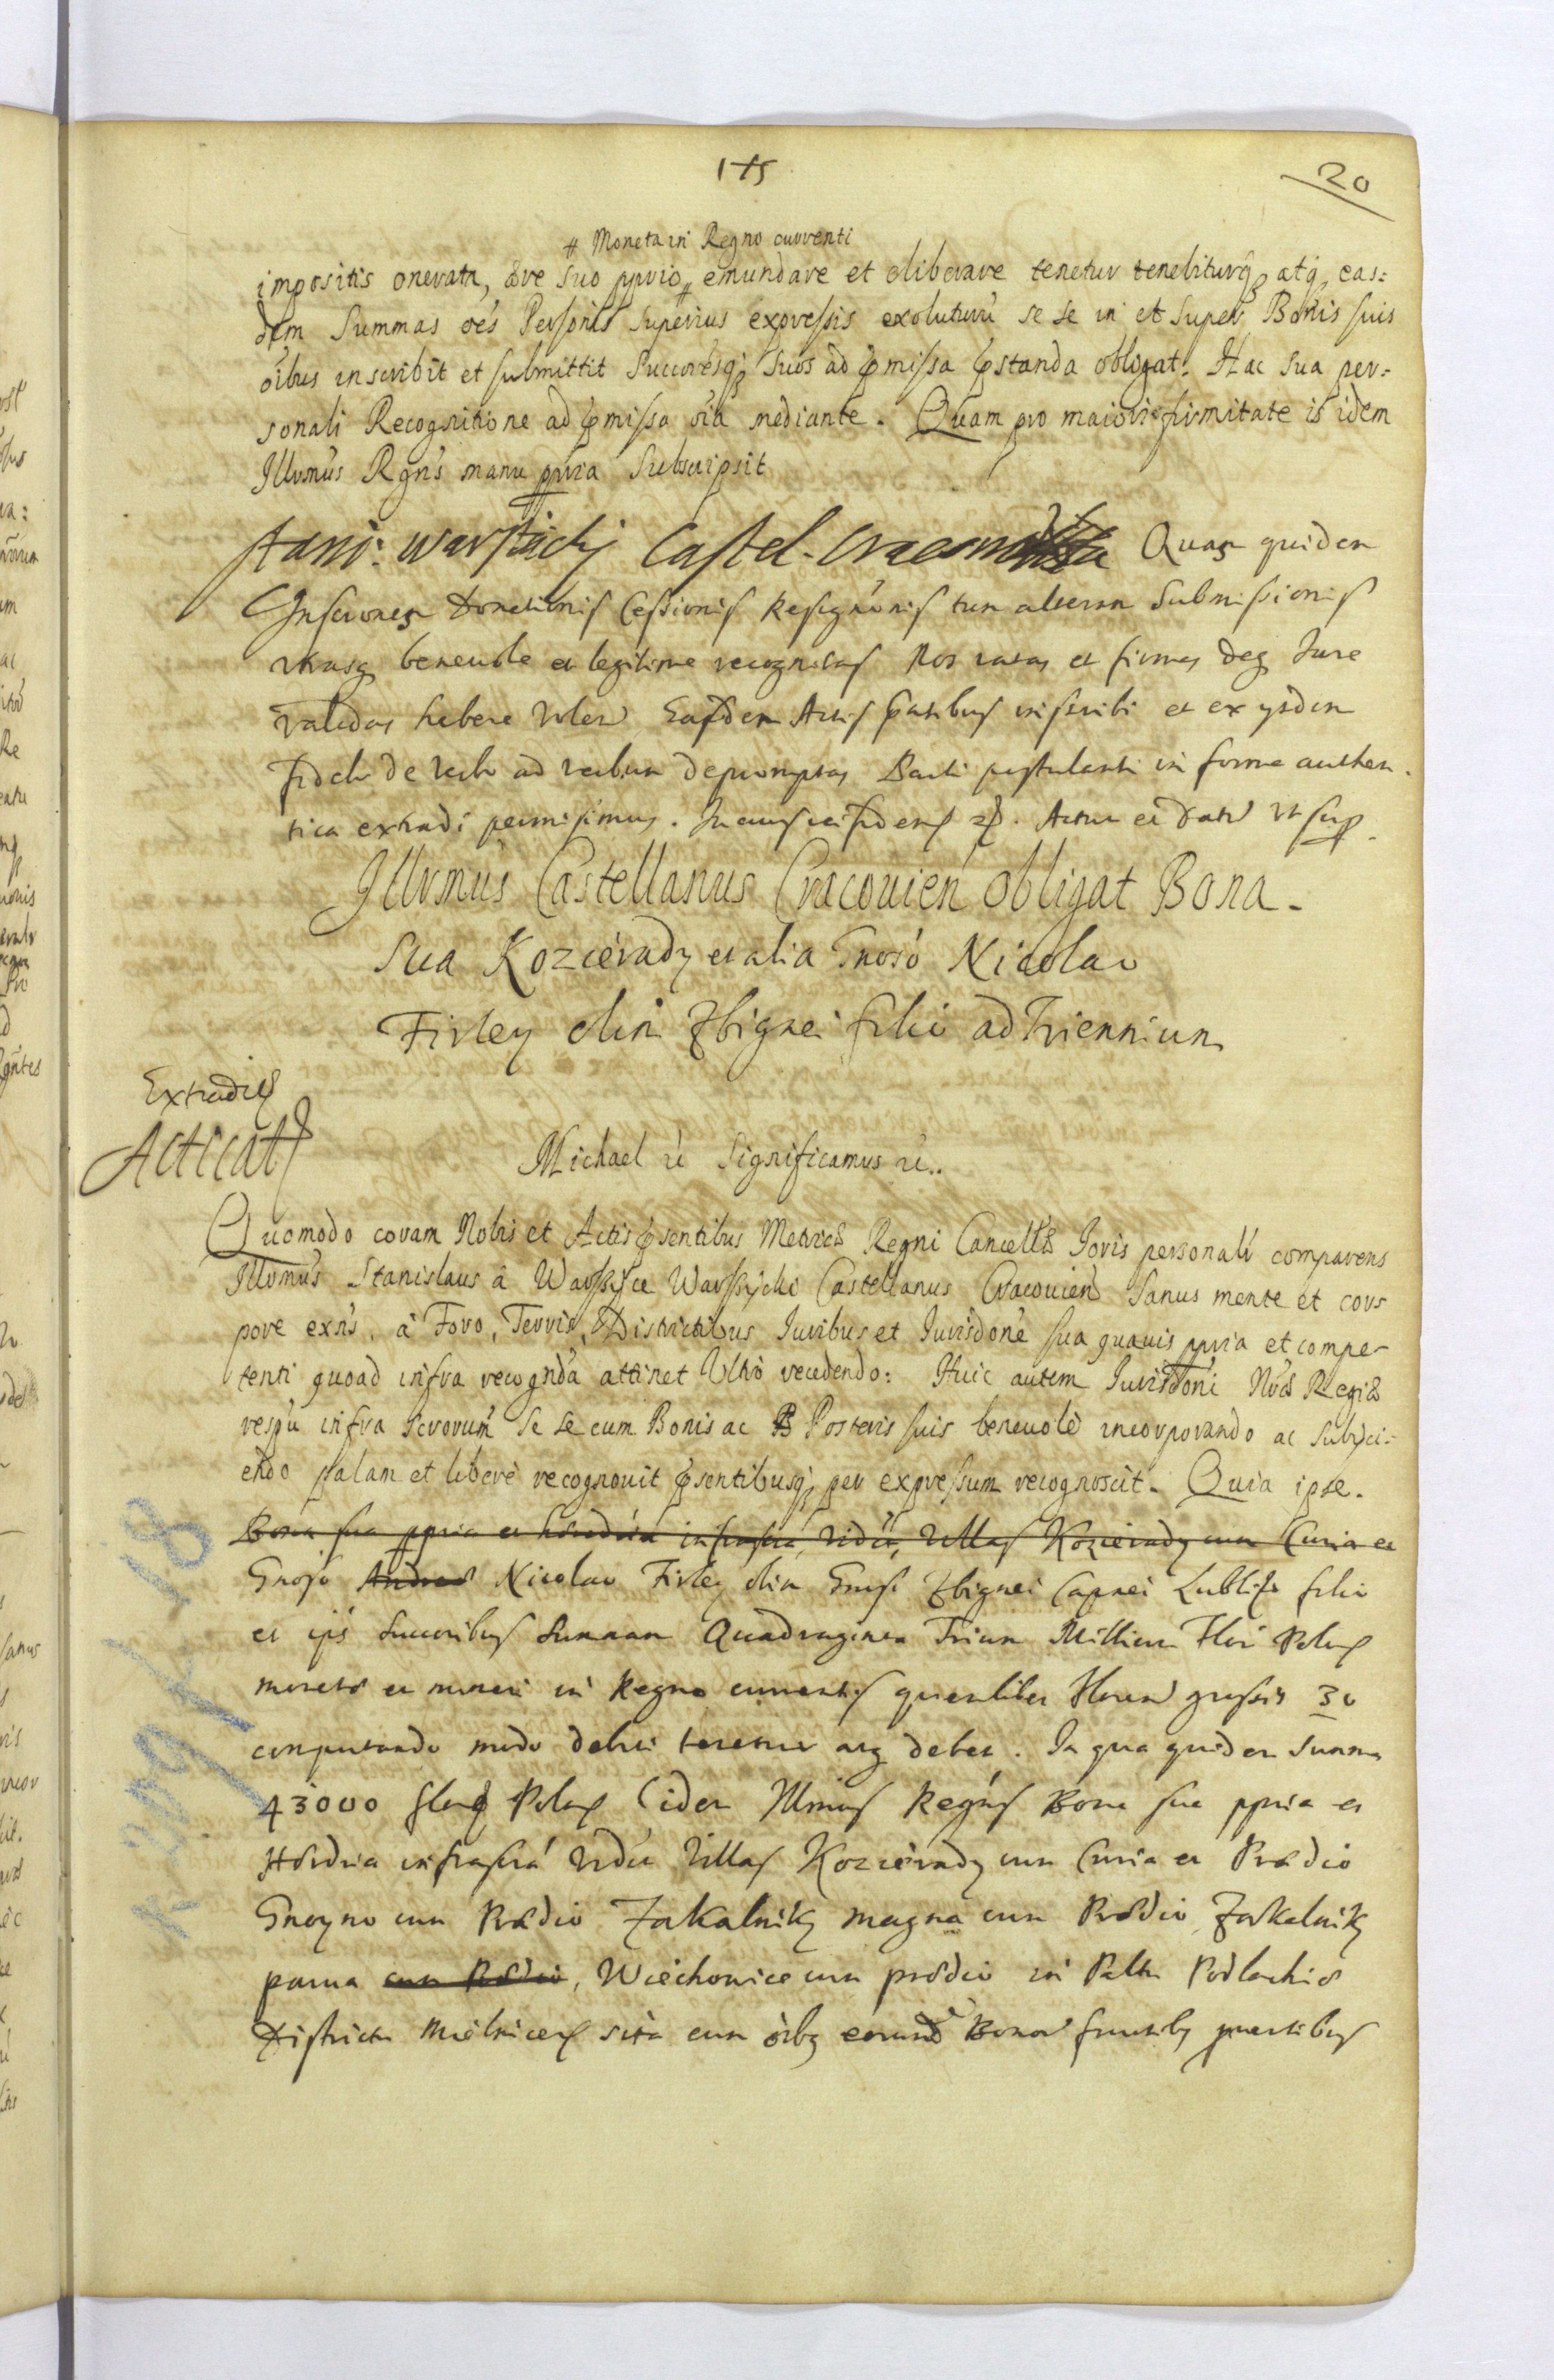 175
20
# Moneta in Regno currenti
impositis onerata, ære suo pprio # emundare et eliberare tenetur tenebiturq; atq; eas:
dem Summas oes Personis superius expressis exoluturu se se in et super Bonis suis
oibus inscribit et submittit Succoresq; suos ad pmissa pstanda obligat. Hac sua per:
sonali Recognitione ad pmissa oia mediante. Quam pro maiori firmitate is idem
Illvmus Rgns manu ppria Subscripsit
Stani: Warszicky Castel. Cracow Quas quidem
Inscriones Donationis Cessionis Resignōnis tum alteram Submissionis
vtrasq; beneuole et legitime recognitas Nos ratas et firmas deq; Iure
validas habere volen̄ Easdem Actis pntibus inscribi et ex ysdem
fidelr de verbo ad verbum depromptas Parti postulanti in forma authen.
tica extradi permisimus. In cuius rei fidem &. Actum et datū vt sup.
Illvmus Castellanus Cracouien obligat Bona
sua Kozierady et alia Gnoso Nicolao
Firley olim Zbignei filio ad Triennium
Extradit
Acticat
Michael &c Significamus &c..
Quomodo coram Nobis et Actis psentibus Metrices Regni Cancellæ Ioris personalr comparens
Illvmus Stanislaus â Warszyce Warszycki Castellanus Cracouien Sanus mente et cor
pore exns, â Foro, Terris, Districtibus Iuribus et Iurisdone sua quauis ppria et compe
tenti quoad infra recognda attinet Ultro recedendo: Huic autem Iurisdoni Nræ Regiæ
respu infra scrorum se se cum Bonis ac B Posteris suis beneuole incorporando ac subyci:
endo palam et libere recognouit psentibusq; per expressum recognoscit. Quia ipse.
Bona sua ppria et hæredria infrascra, videt, Villas Kozierady cum Curia et
Gnoso Andreæ Nicolao Firley olim Gnosi Zbignei Capnei Lublin filio
et ips Succoribus Summam Quadraginta Trium Millium Flor Polon
monetæ et numeri in Regno currentis quemlibet Floren grossis 30
computando modo debiti tenetur atq; debet. In qua quidem Summa
43000 flor Polon Eidem Illmus Regns Bona sua ppria et
Hærdria infrascra videt Villas Kozierady cum Curia et Prædio
Gnoyno cum Prædio Zakalniky magna cum Prædio Zakalniky
parua cum Prædio, Wiechowice cum prædio in Pallu Podlachiæ
Districtu Mielnicen sita cum oibq eorund Bonor fructibq prouentibus